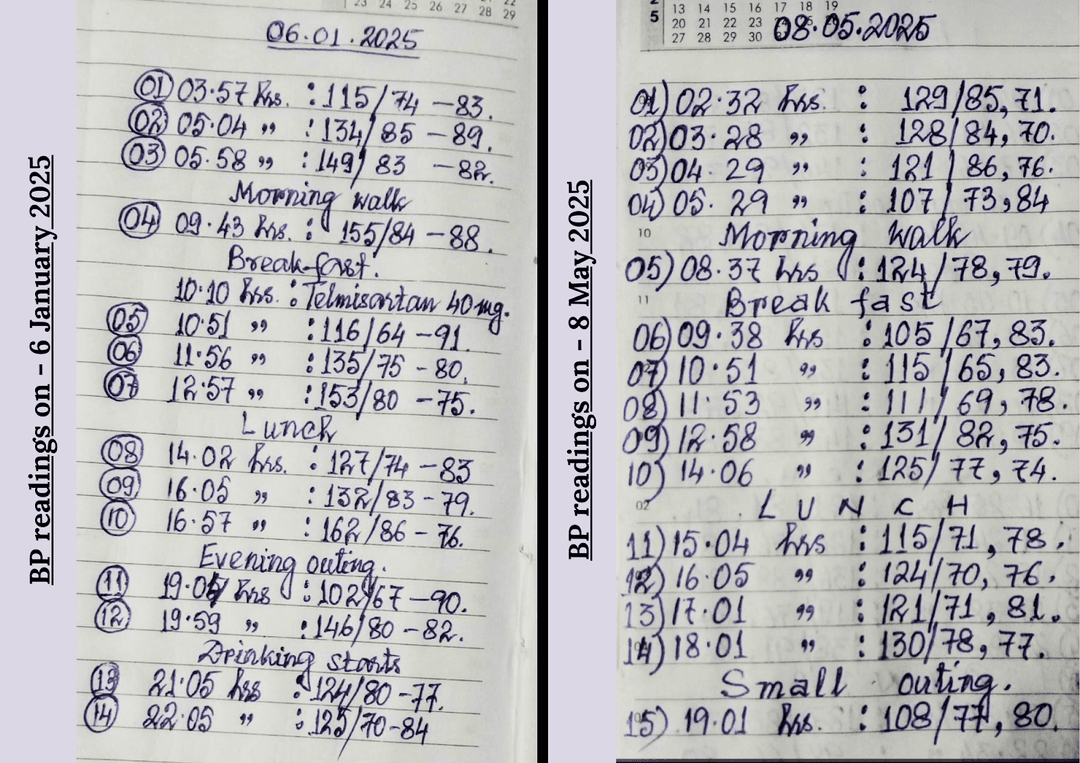 BP readings on - 6 January 2025
23 24 25 26 27 28 29
06.01.2025
01 03.57 hrs. : 115/74 - 83.
02 05.04 " : 134/85 - 89.
03 05.58 " : 149/83 - 82.
Morning walk
04 09.43 hrs. : 155/84 - 88.
Breakfast.
10.10 hrs. : Telmisartan 40mg.
05 10.51 " : 116/64 - 91.
06 11.56 " : 135/75 - 80.
07 12.57 " : 153/80 - 75.
Lunch
08 14.02 hrs. : 127/74 - 83
09 16.05 " : 132/83 - 79.
10 16.57 " : 162/86 - 76.
Evening outing.
11 19.04 hrs : 102/67 - 90.
12 19.59 " : 146/80 - 82.
Drinking starts
13 21.05 hrs : 124/80 - 77.
14 22.05 " : 125/70 - 84
BP readings on - 8 May 2025
13 14 15 16 17 18 19
5 20 21 22 23
27 28 29 30
08.05.2025
01) 02.32 hrs. : 129/85, 71.
02) 03.28 " : 128/84, 70.
03) 04.29 " : 121/86, 76.
04) 05.29 " : 107/73, 84
10 Morning walk
05) 08.37 hrs : 124/78, 79.
11 Break fast
06) 09.38 hrs : 105/67, 83.
07) 10.51 " : 115/65, 83.
08) 11.53 " : 111/69, 78.
09) 12.58 " : 131/82, 75.
10) 14.06 " : 125/77, 74.
02 LUNCH
11) 15.04 hrs : 115/71, 78.
12) 16.05 " : 124/70, 76.
13) 17.01 " : 121/71, 81.
14) 18.01 " : 130/78, 77.
Small outing.
15) 19.01 hrs. : 108/77, 80.